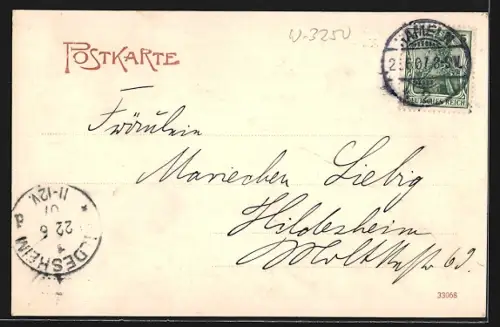 W-3250
POSTKARTE
HAMELN
6.07. 8-9V.
DEUTSCHES REICH
Fräulein
Mariechen Liebig
Hildesheim
Moltkestr 62.
HILDESHEIM
1
22 6
07
11-12V.
33068